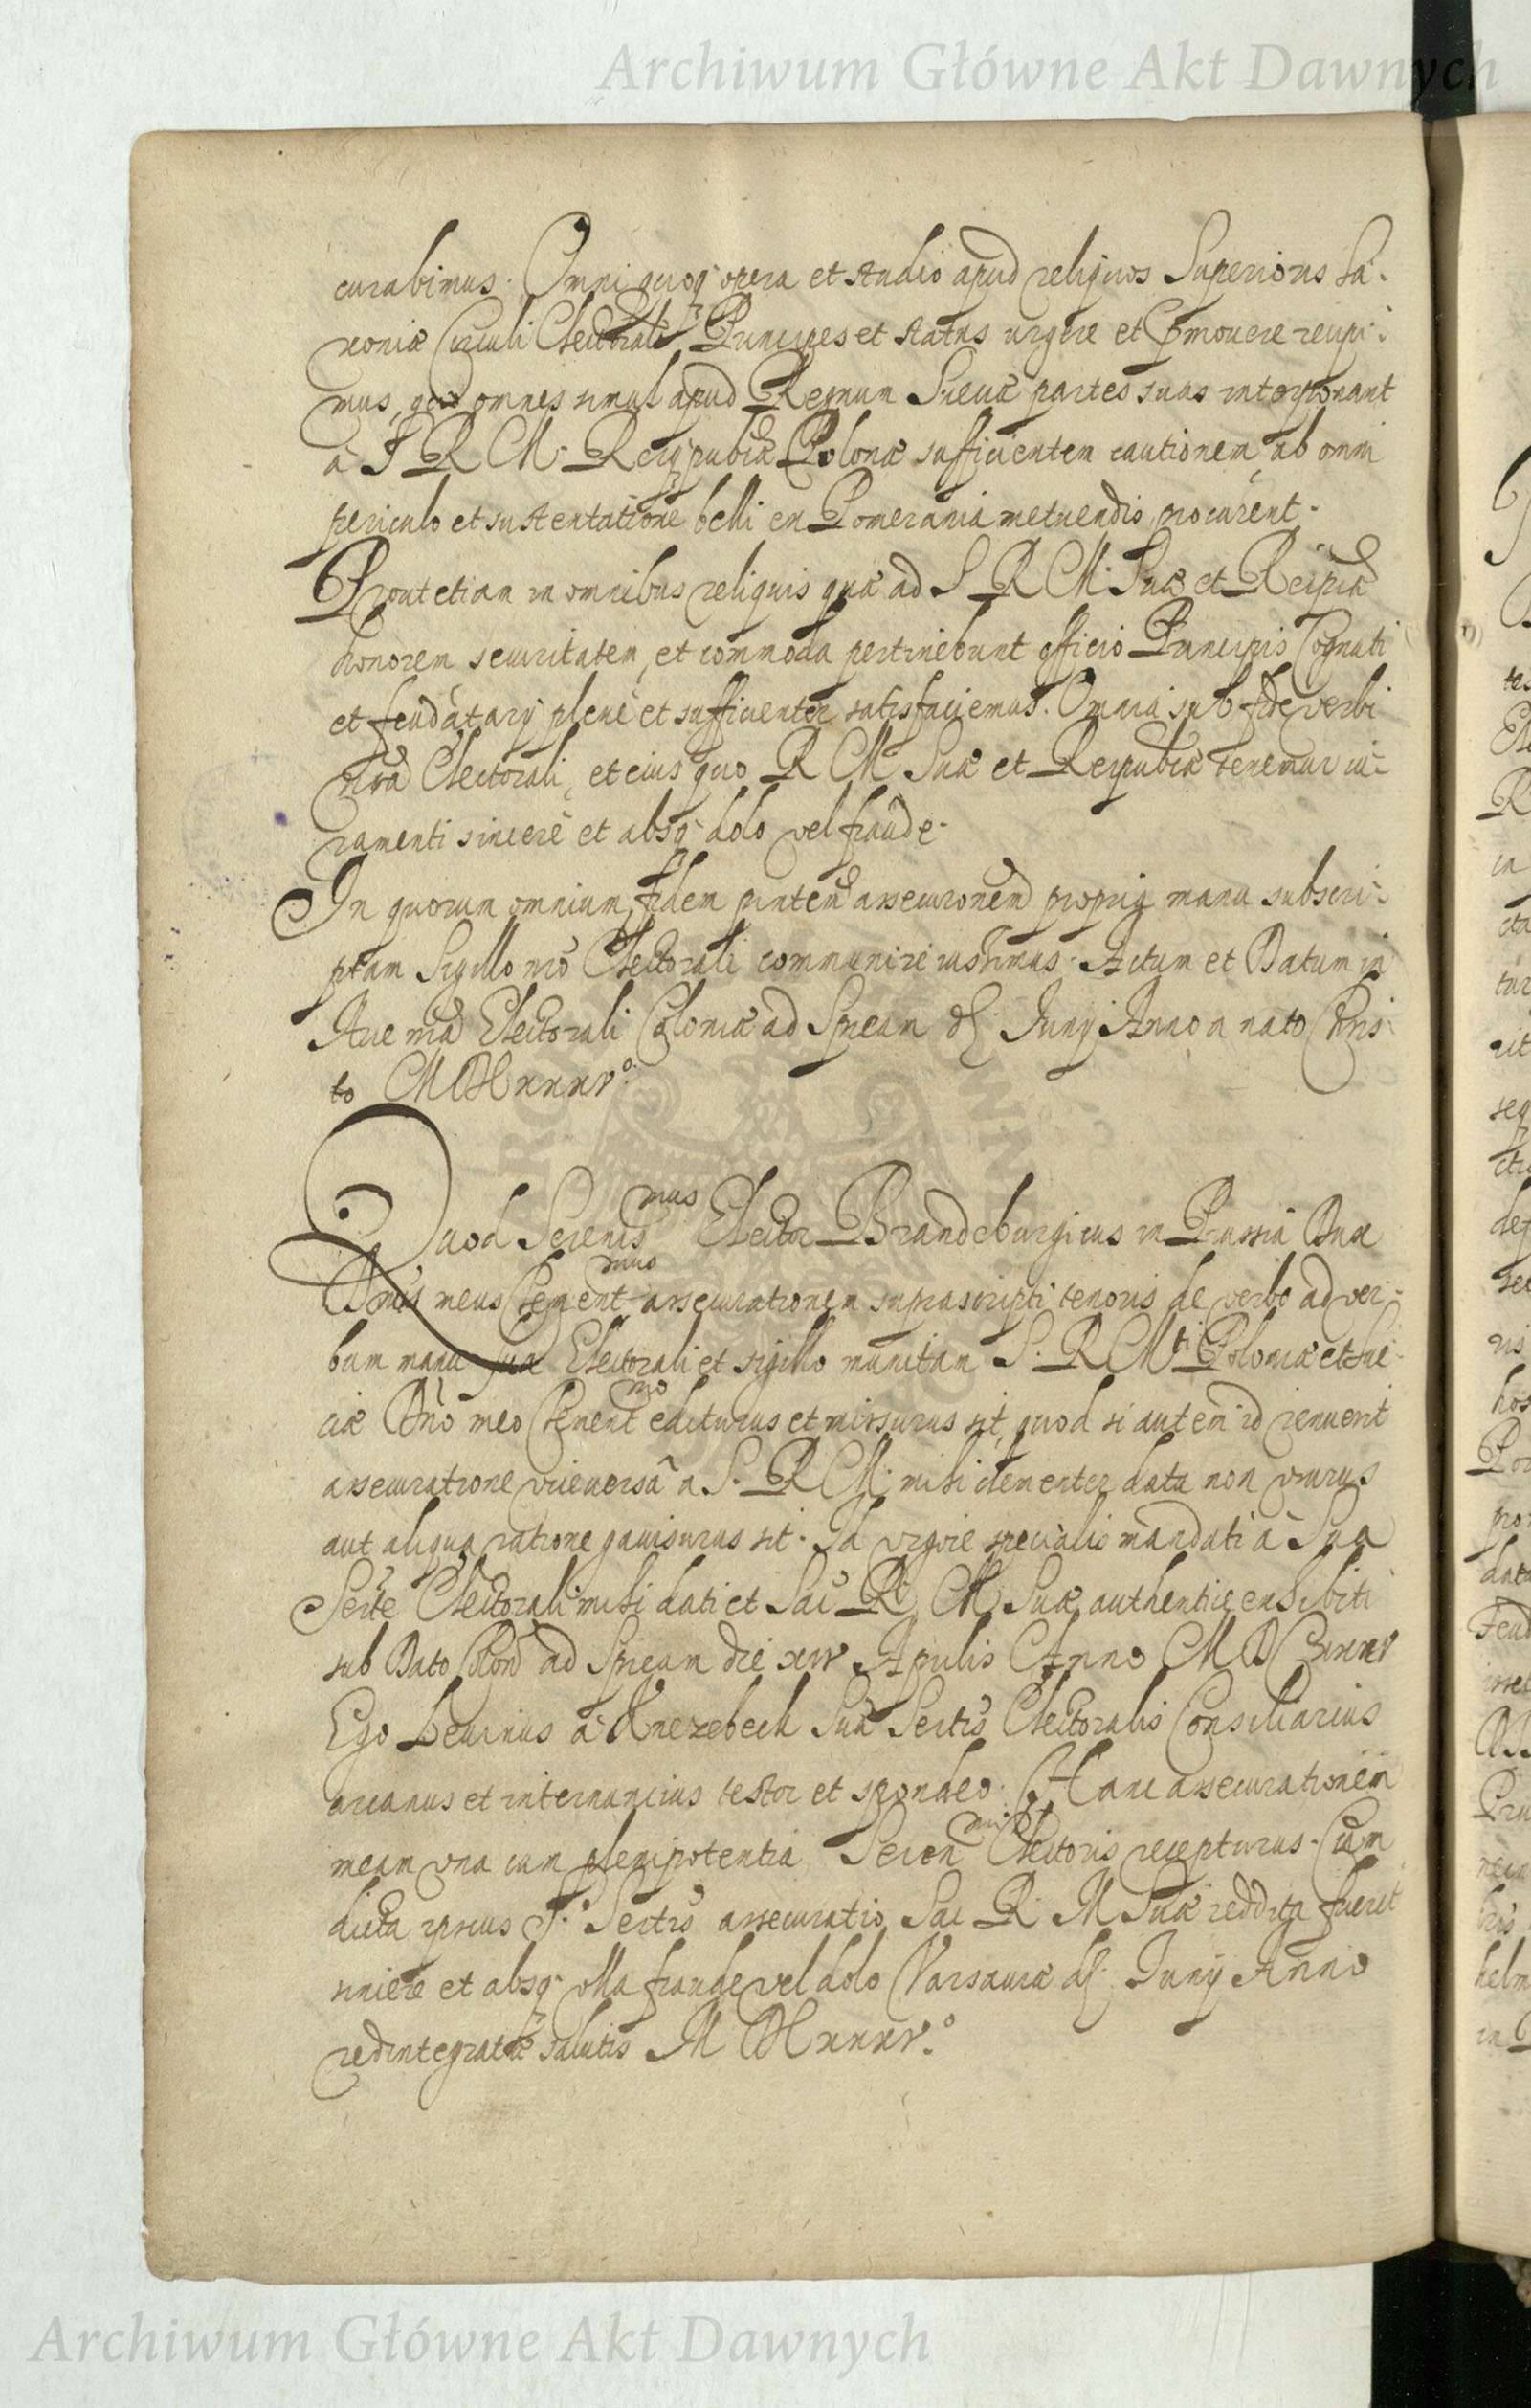 Archiwum Główne Akt Dawnych
curabimus. Omni quoq opera et studio apud reliquos Superioris Sa-
xoniæ Circuli Electorales Principes et status urgere et promouere recipi-
mus, quod omnes simul apud Regnum Sueciæ partes suas interponant
à S R M. Reiqpublcæ Polonæ sufficientem cautionem, ab omni
periculo et sustentatione belli ex Pomerania metuendis procurent.
Prout etiam in omnibus reliquis quæ ad S R M. Suæ et Reipcæ
honorem securitatem, et commoda pertinebunt officio Principis Cognati
et feudatarÿ plenè et sufficienter satisfaciemus. Omnia sub fide verbi
nrã Electorali, et eius quo R M Suæ et Reipublcæ tenemur iu-
ramenti sincerè et absq dolo vel fraude.
In quorum omnium fidem pntem assecurõnem propria manu subscri-
ptam Sigillo nrõ Electorali communire iussimus. Actum et Datum in
Arce nrã Electorali Coloniæ ad Spream Junÿ Anno a nato Chris
to MDCxxxvº.
Quod Serenismus Elector Brandeburgicus in Prussia Dux
Dnus meus Clementmus assecurationem suprascripti tenoris de verbo ad ver-
bum manu sua Electorali et sigillo munitam S. R Mti Poloniæ et Sue-
ciæ Dño meo Clementmo editurus et missurus sit, quod si autem id renuerit
assecuratione viceversâ a S. R M. mihi clementer data non usurus
aut aliqua ratione gauisurus sit. Id vigore specialis mandati à Sua
Serte Electorali mihi dati et Sac R M Suæ authentice exhibiti
sub Dato Colon ad Spream die xiv Aprilis Anno MDCxxxv
Ego Leuinus à Knezebeck Suæ Sertis Electoralis Consiliarius
arcanus et internuncius testor et spondeo. Hanc assecurationem
meam vna cum plenipotentia Serenmi Electoris recepturus. Cum
dicta ipsius S. Sertis assecuratio Sac R M Suæ reddita fuerit
sincere et absq vlla fraude vel dolo Varsauiæ Junÿ Anno
redintegratæ salutis M DCxxxvº.
Archiwum Główne Akt Dawnych